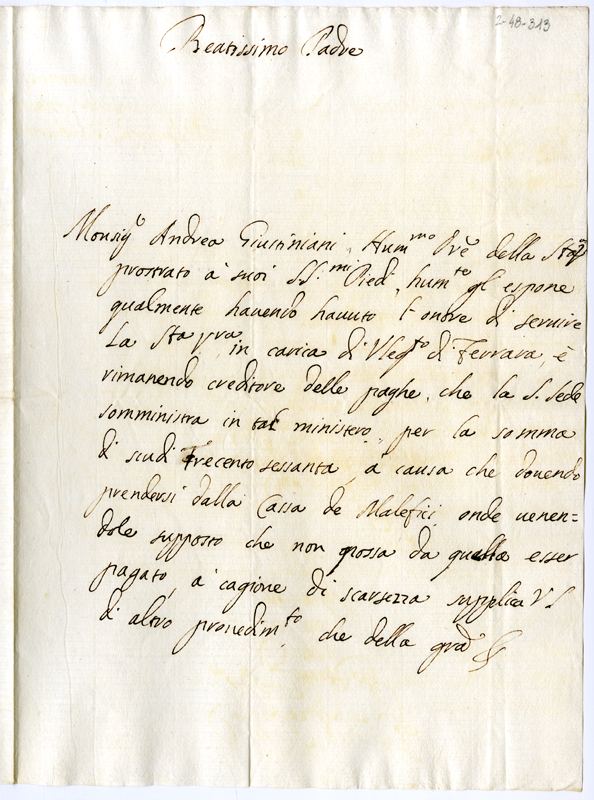 2-48-313
Beatissimo Padre
Monsig.e Andrea Giustiniani, Hum.mo Ore della S.tà
prostrato a' suoi SS.mi Piedi, hum.te gl'espone
qualmente havendo havuto l'onore di servire
La S.tà vra in carica di Vleg.to di Ferrara, è
rimanendo creditore delle paghe, che la S. Sede
somministra in tal ministero, per la somma
di scudi Trecento sessanta, à causa che douendo
prendersi dalla Cassa de Malefici, onde uenen=
dole supposto che non possa da quella esser
pagato, a' cagione di scarsezza supplica V. S.
di altro prouedim.to, che della gra